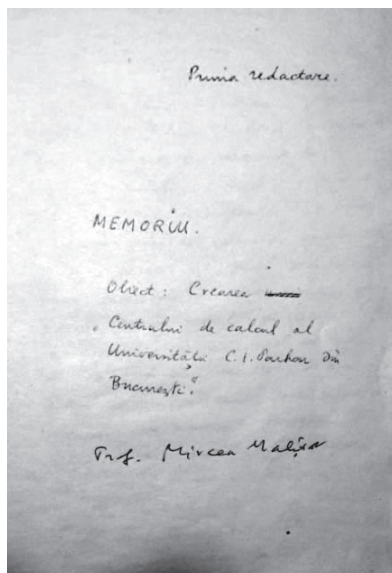 Prima redactare.
MEMORIU.
Obiect: Crearea
„Centrului de calcul al
Universității C.I. Parhon din
București."
Prof. Mircea Malița